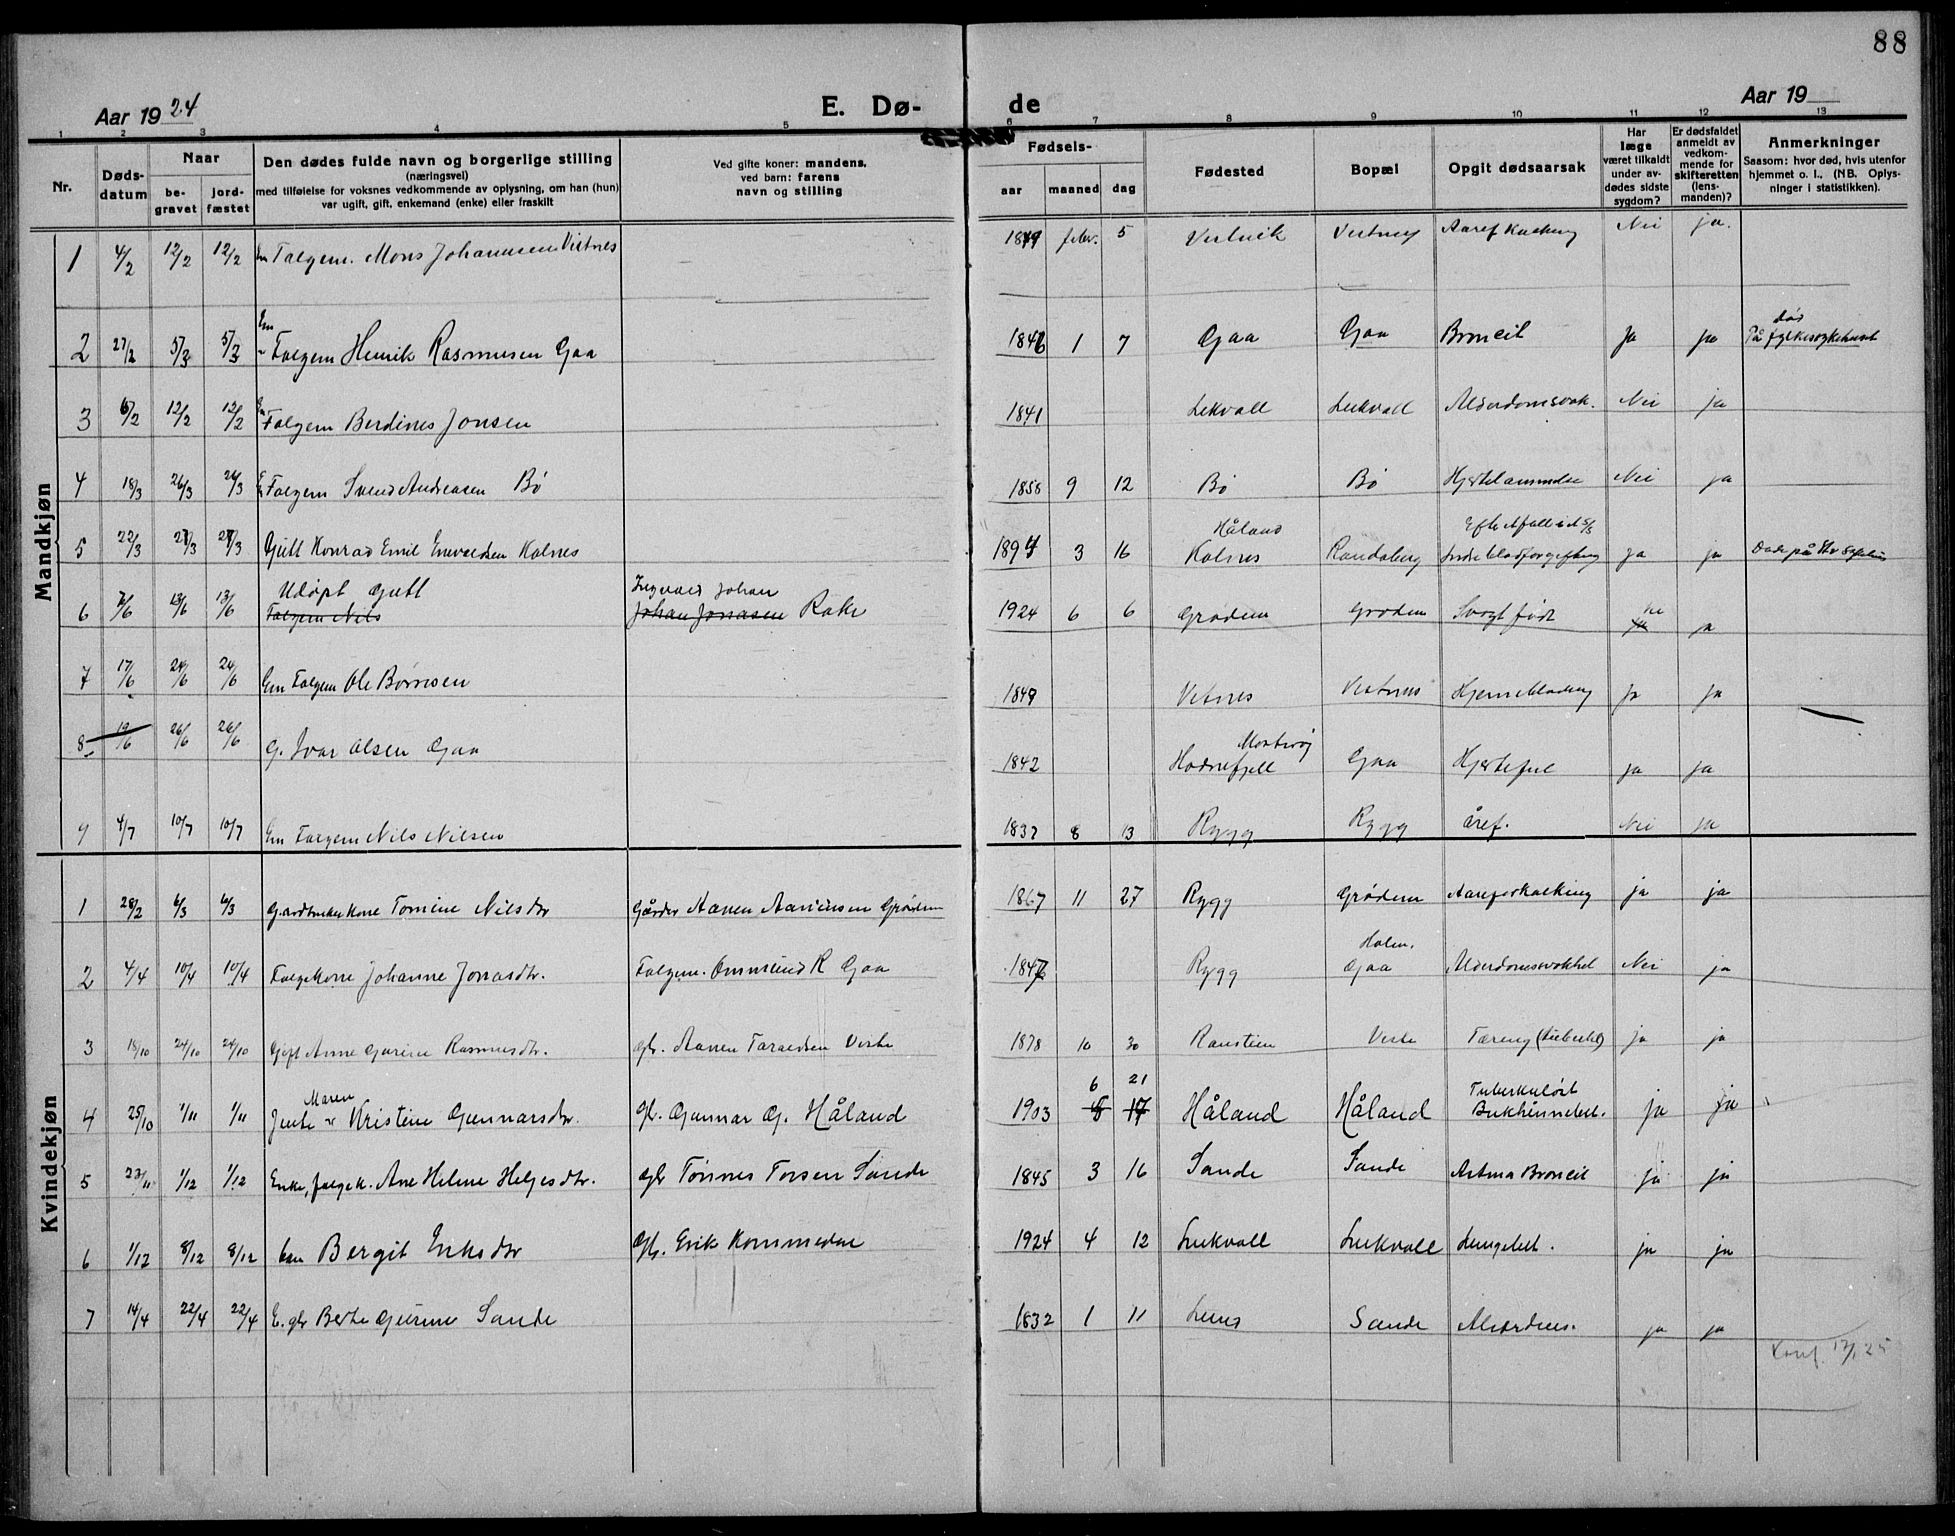 88
Aar 1924
E. Dø-
de
Aar 19
1 2 3 4 5 6 7 8 9 10 11 12 13
Nr.
Døds-
datum
Naar
be-
gravet
jord-
fæstet
Den dødes fulde navn og borgerlige stilling
(næringsvei)
med tilføielse for voksnes vedkommende av oplysning, om han (hun)
var ugift, gift, enkemand (enke) eller fraskilt
Ved gifte koner: mandens,
ved barn: farens
navn og stilling
Fødsels-
aar
maaned
dag
Fødested
Bopæl
Opgit dødsaarsak
Har
læge
været tilkaldt
under av-
dødes sidste
sygdom?
Er dødsfaldet
anmeldt av
vedkom-
mende for
skifteretten
(lens-
manden)?
Anmerkninger
Saasom: hvor død, hvis utenfor
hjemmet o. l., (NB. Oplys-
ninger i statistikken).
Mandkjøn
1 4/2 12/2 12/2 Em Folgem. Mons Johannesen Vistnes 1849 febr. 5 Vistnes Nei ja.
2 27/2 5/3 5/3 Em Folgem Henrik Rasmusen Gaa 1846 1 7 Gaa Gaa Broncit ja ja død På fylkesykehuset
3 6/2 12/2 12/2 Em Folgem Berdines Jonsen 1841 Leikvoll Leikvoll Alderdomssvak. Nei ja
4 18/3 26/3 26/3 E Folgem Svend Andreasen Bø 1858 9 12 Bø Bø Hjertelammelse Nei ja
5 22/3 27/3 27/3 Gutt Konrad Emil Enevaldsen Kolnes 1897 3 16 Håland Kolnes Randaberg ja ja
6 7/6 13/6 13/6 Udøpt Gutt Folgem Nils Ingvald Johan Johan Jonasen Roke 1924 6 6 Grødem Grødem Svagt født ne ja
7 17/6 24/6 24/6 Em Folgem Ole Børresen 1849 Vistnes Vistnes ja ja
8 19/6 26/6 26/6 G. Ivar Olsen Gaa 1842 Mosterøy Hodnefjell Gaa Hjertefeil ja ja
9 4/7 10/7 10/7 Em Folgem Nils Nilsen 1837 8 13 Rygg Rygg åref. Nei ja
Kvindekjøn
1 28/2 6/3 6/3 Gardbrukerkone Tomine Nilsdtr Gårdbr Aanen Grødem 1867 11 27 Rygg Grødem Aareforkalking ja ja
2 4/4 10/4 10/4 Folgekone Johanne Jonasdtr. Folgem. Ommund R Gaa 1847 Rygg Holm. Gaa Alderdomssvakhet Nei ja
3 18/10 24/10 24/10 Gift Anne Gurine Rasmusdtr. Gbr. Aanen Taraldsen Viste 1878 10 30 Viste Tæring (tuberkel) ja ja
4 25/10 1/11 1/11 Jente Maren Kristine Gunnarsdtr. Gbr. Gunnar G. Håland 1903 6 21 8 17 Håland Håland Tuberkuløst Bukhinnebet. ja ja
5 23/11 1/12 1/12 Enke, folgek. Ane Helene Helgesdtr. Gbr Tønnes Torsen Sande 1845 3 16 Sande Sande Astma Broncit ja ja
6 1/12 8/12 8/12 Bergit Eriksdtr Gbr. Erik Kommedal 1924 4 12 Leikvoll Leikvoll Lungebet. ja ja
7 14/4 22/4 22/4 E. gbr Berte Gurine Sande 1832 1 11 Sande ja ja
Konf. 17/1 25